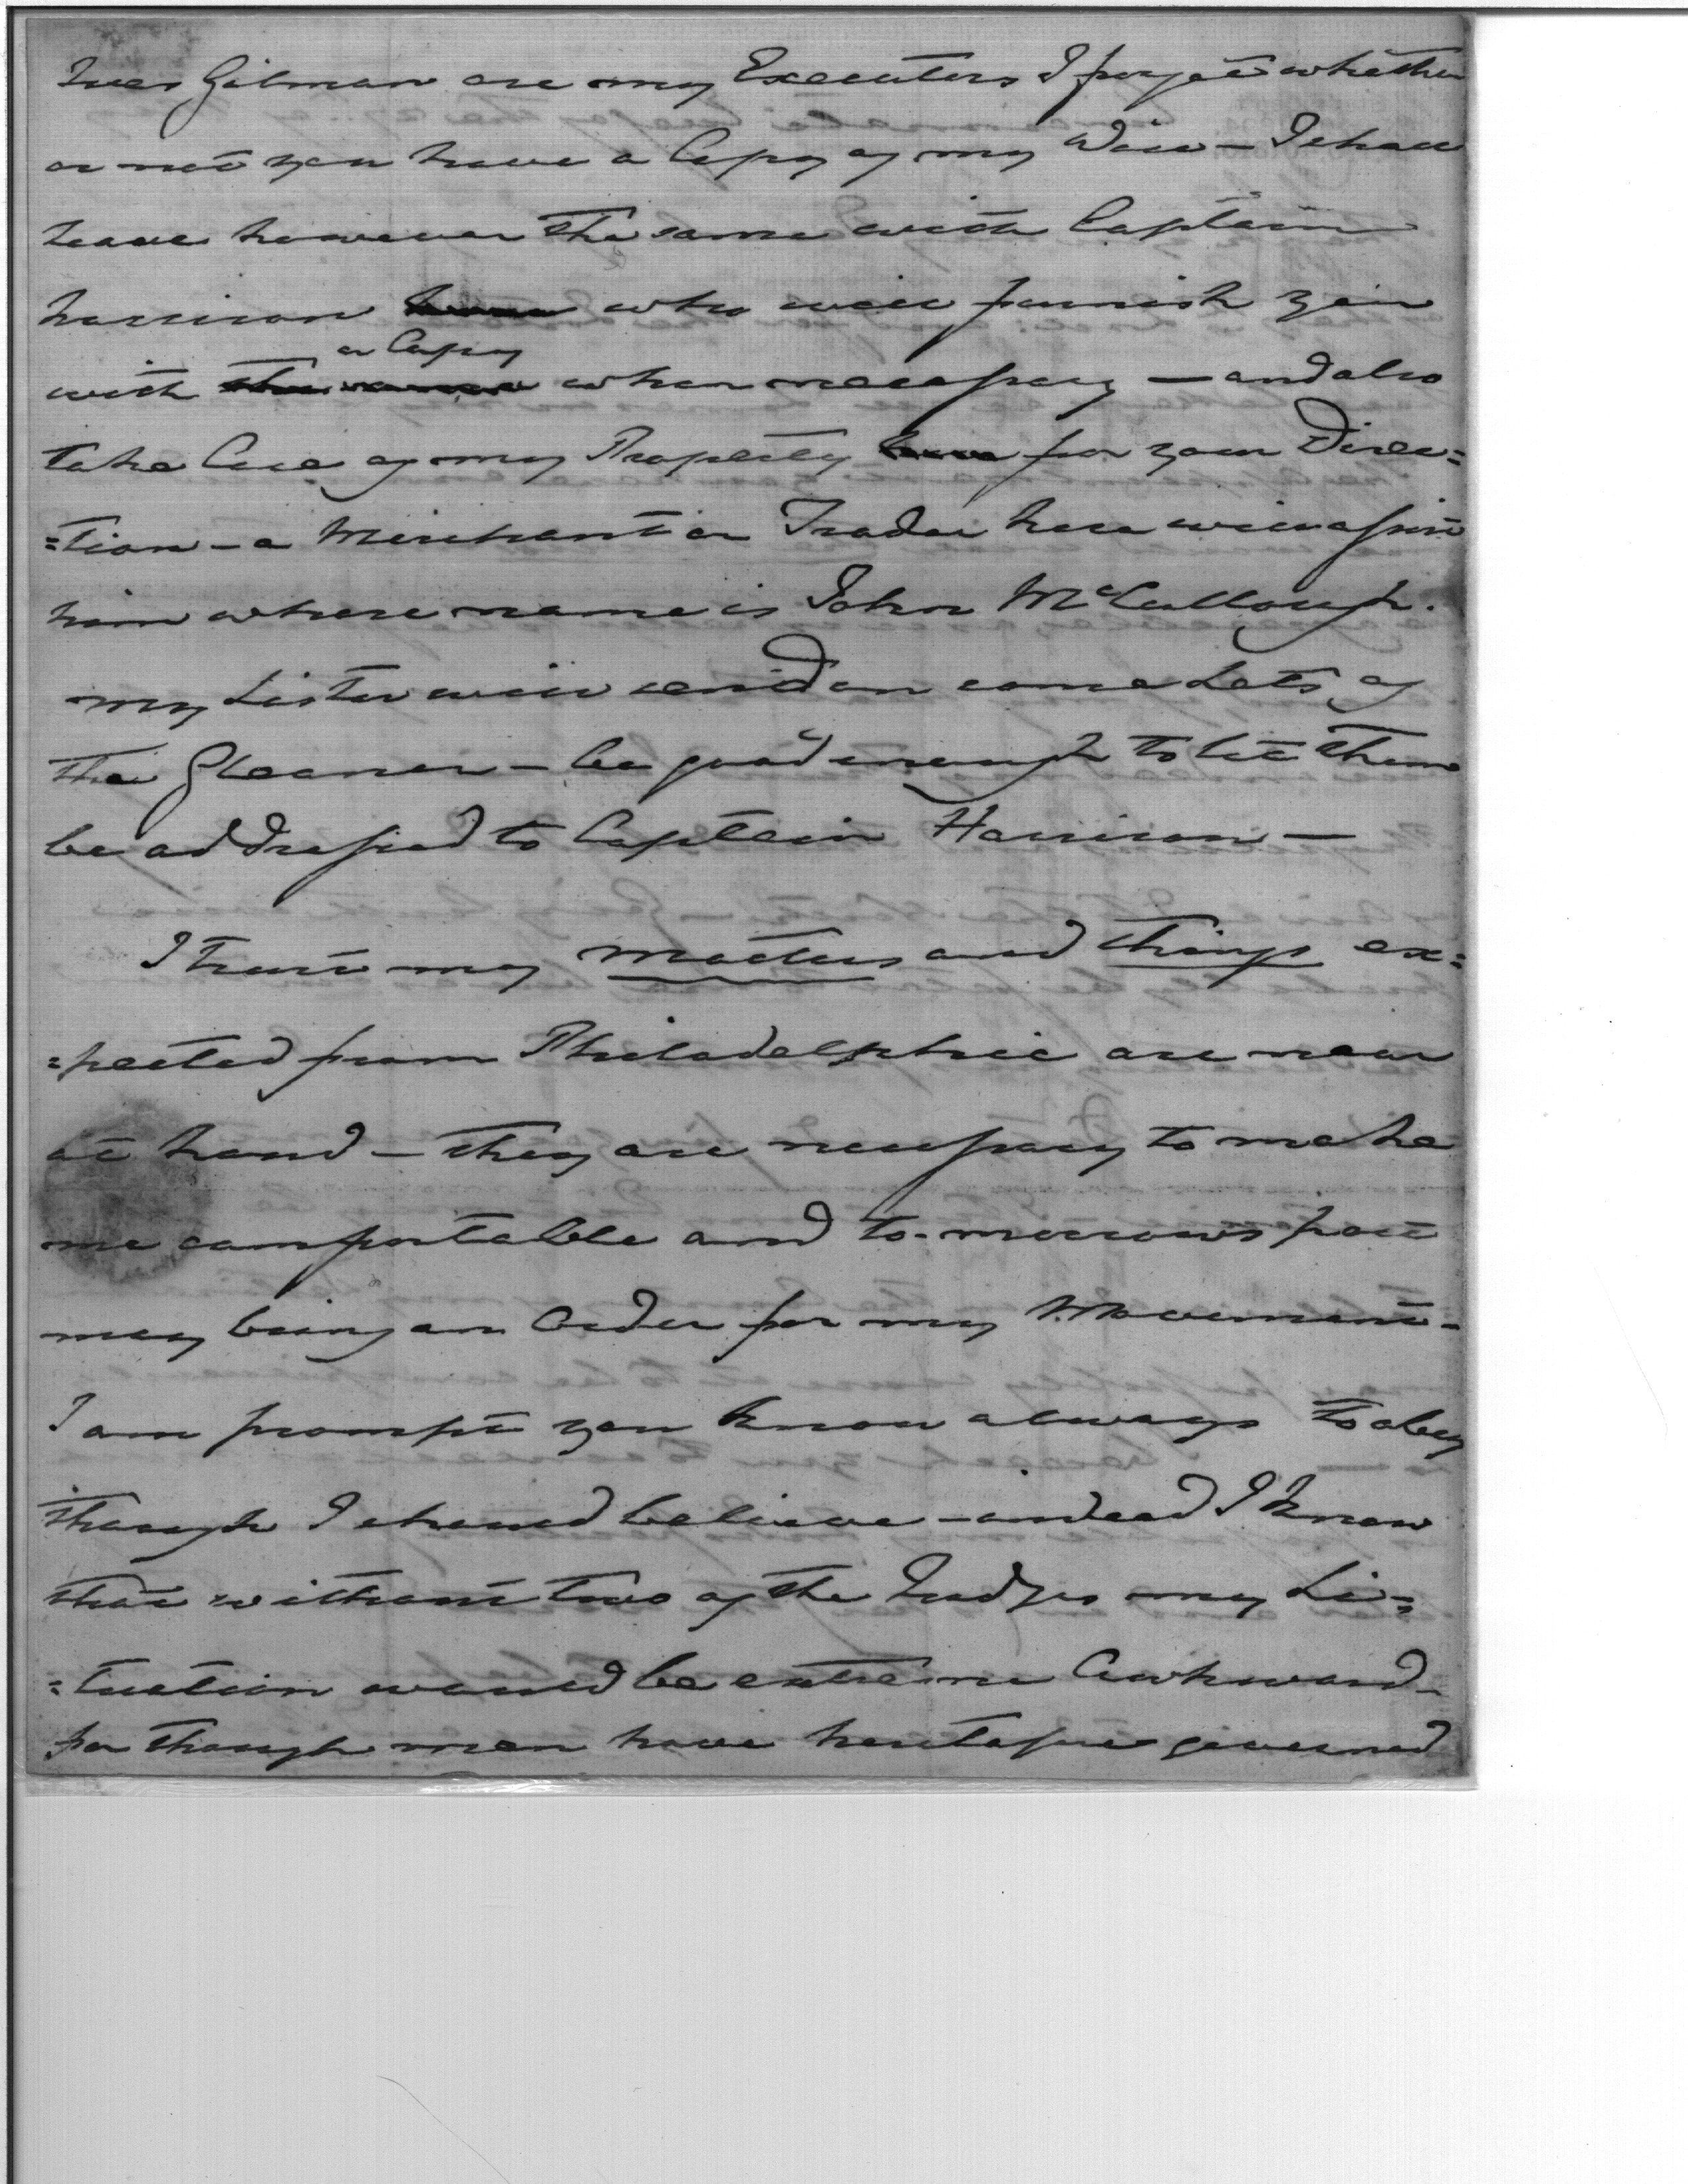 Ives Gilman are my Executors I forget whether
or not you have a Copy of my Will – I shall
leave however the same with Captain
harrison who will furnish you
a Copy
with when necessary — and also
take Care of my Property for your Direc=
=tion – a Merchant or Trader here will assist
him whose name is John McCullough.
my Sister will send on some Setts of
the Gleaner – be good enough to let them
be addressed to Captain Harrison —
I trust my matters and things ex=
=pected from Philadelphia are near
at hand – they are necessary to make
me comfortable and to-morrows post
may bring an Order for my Movement –
I am prompt you know always to obey
though I should believe – indeed I know
that without two of the Judges my Si=
=tuation would be extreme Awkward –
for though men have heretofore governed